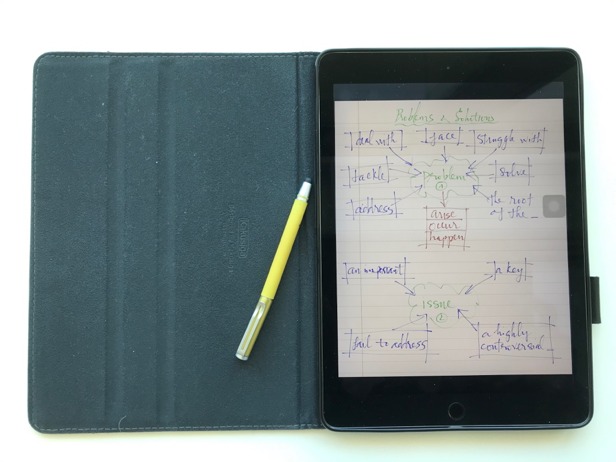 Problems & Solutions
deal with
face
struggle with
tackle
problem
①
solve
address
the root
of the _
arise
occur
happen
an important
a key
issue
②
fail to address
a highly
controversial